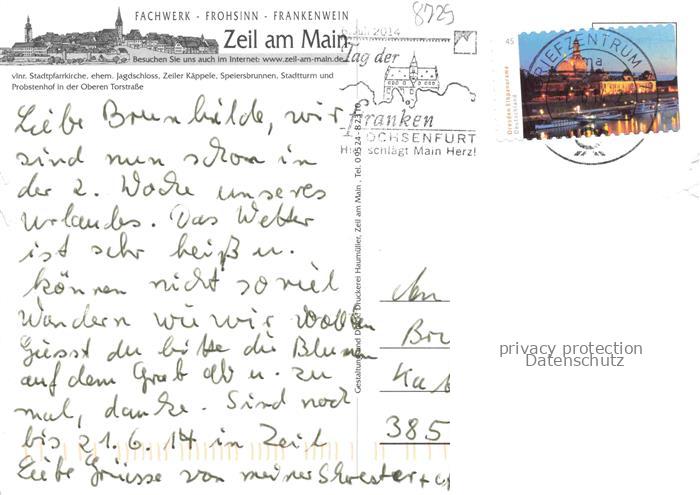 FACHWERK · FROHSINN · FRANKENWEIN
Zeil am Main
Besuchen Sie uns auch im Internet: www.zeil-am-main.de
vlnr. Stadtpfarrkirche, ehem. Jagdschloss, Zeiler Käppele, Speiersbrunnen, Stadtturm und
Probstenhof in der Oberen Torstraße
8729
2014
Tag der
Franken
OCHSENFURT
Hier schlägt Main Herz!
45
Dresden Elbpanorama
Deutschland
BRIEFZENTRUM
Liebe Brunhilde, wir
sind nun schon in
der 2. Woche unseres
Urlaubes. Das Wetter
ist sehr heiß u.
können nicht soviel
Wandern wie wir wollten
Giesst du bitte die Blumen
auf dem Grab ab u. zu
mal, danke. Sind noch
bis 21.6.14 in Zeil
Liebe Grüsse von meiner Schwester +
Gestaltung und Druck: Druckerei Haumüller, Zeil am Main, Tel. 09524-82310
An
Bru
Ka
385
privacy protection
Datenschutz